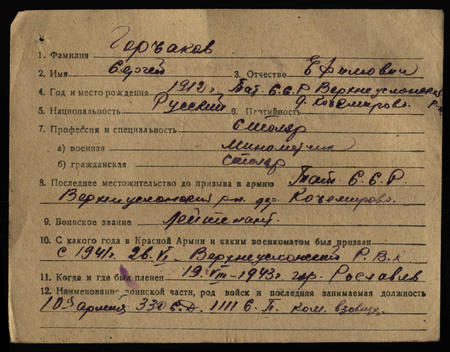 1. Фамилия Горбаков
2. Имя Сергей 3. Отчество Ефимович
4. Год и место рождения 1912 г. Тат. С.С.Р Верхнеуслонский р-н
д. Кожемирово
5. Национальность Русский 6. Партийность
7. Профессия и специальность Столяр
а) военная минометчик
б) гражданская столяр
8. Последнее местожительство до призыва в армию Тат. С.С.Р
Верхнеуслонский рн. дер. Кожемирово.
9. Воинское звание Лейтенант.
10. С какого года в Красной Армии и каким военкоматом был призван
с 1941г. 26.VI Верхнеуслонский Р.В.К
11. Когда и где был пленен 19.VIII-1943г. гор. Рославль
12. Наименование воинской части, род войск и последняя занимаемая должность
10я армия 330 С.Д. 1111 С.П. ком. взвода.